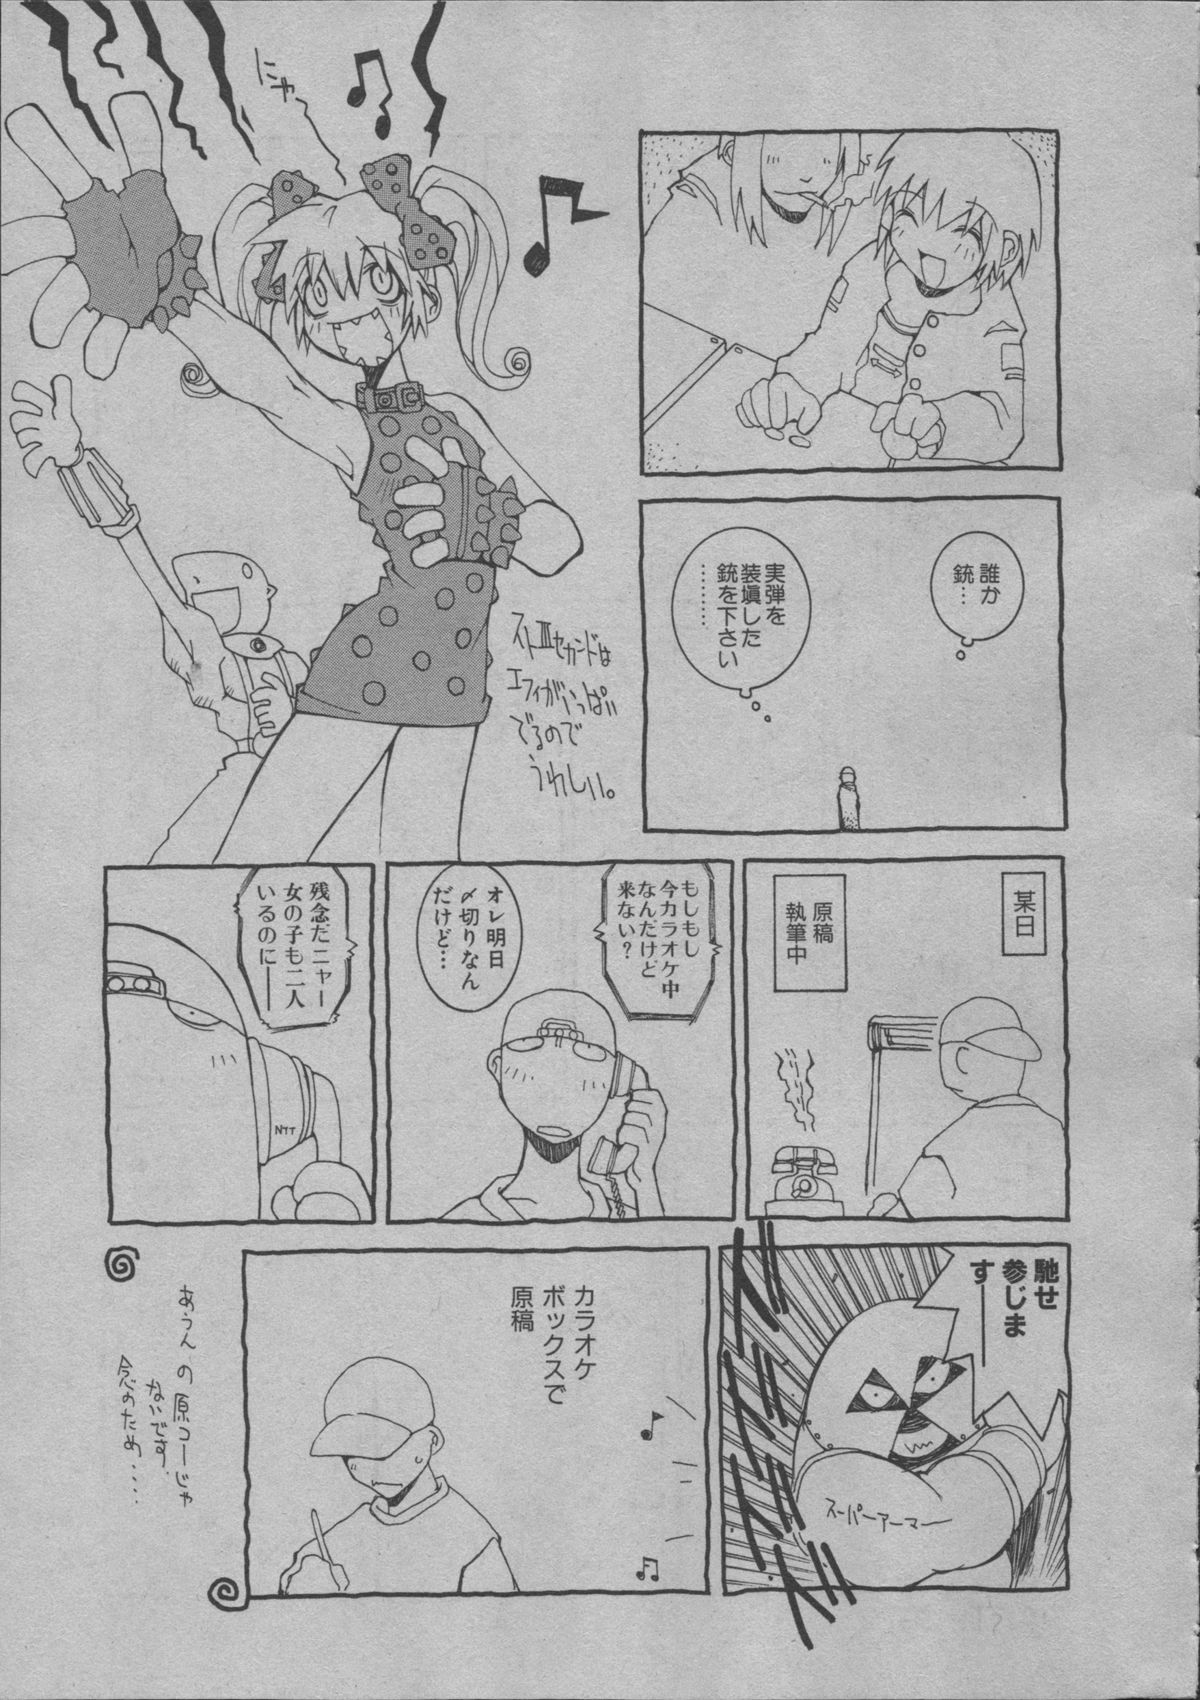 にゃー
誰か
銃…
実弾を
装填した
銃を下さい
…………
ストⅢセカンドは
エフィがいっぱい
でるので
うれしい。
某日
原稿
執筆中
もしもし
今カラオケ中
なんだけど
来ない？
オレ明日
〆切りなん
だけど…
残念だニャー
女の子も二人
いるのに――
NTT
馳せ
参じま
す――
スーパーアーマー
カラオケ
ボックスで
原稿
あうん の原コーじゃ
ないです
念のため‥‥